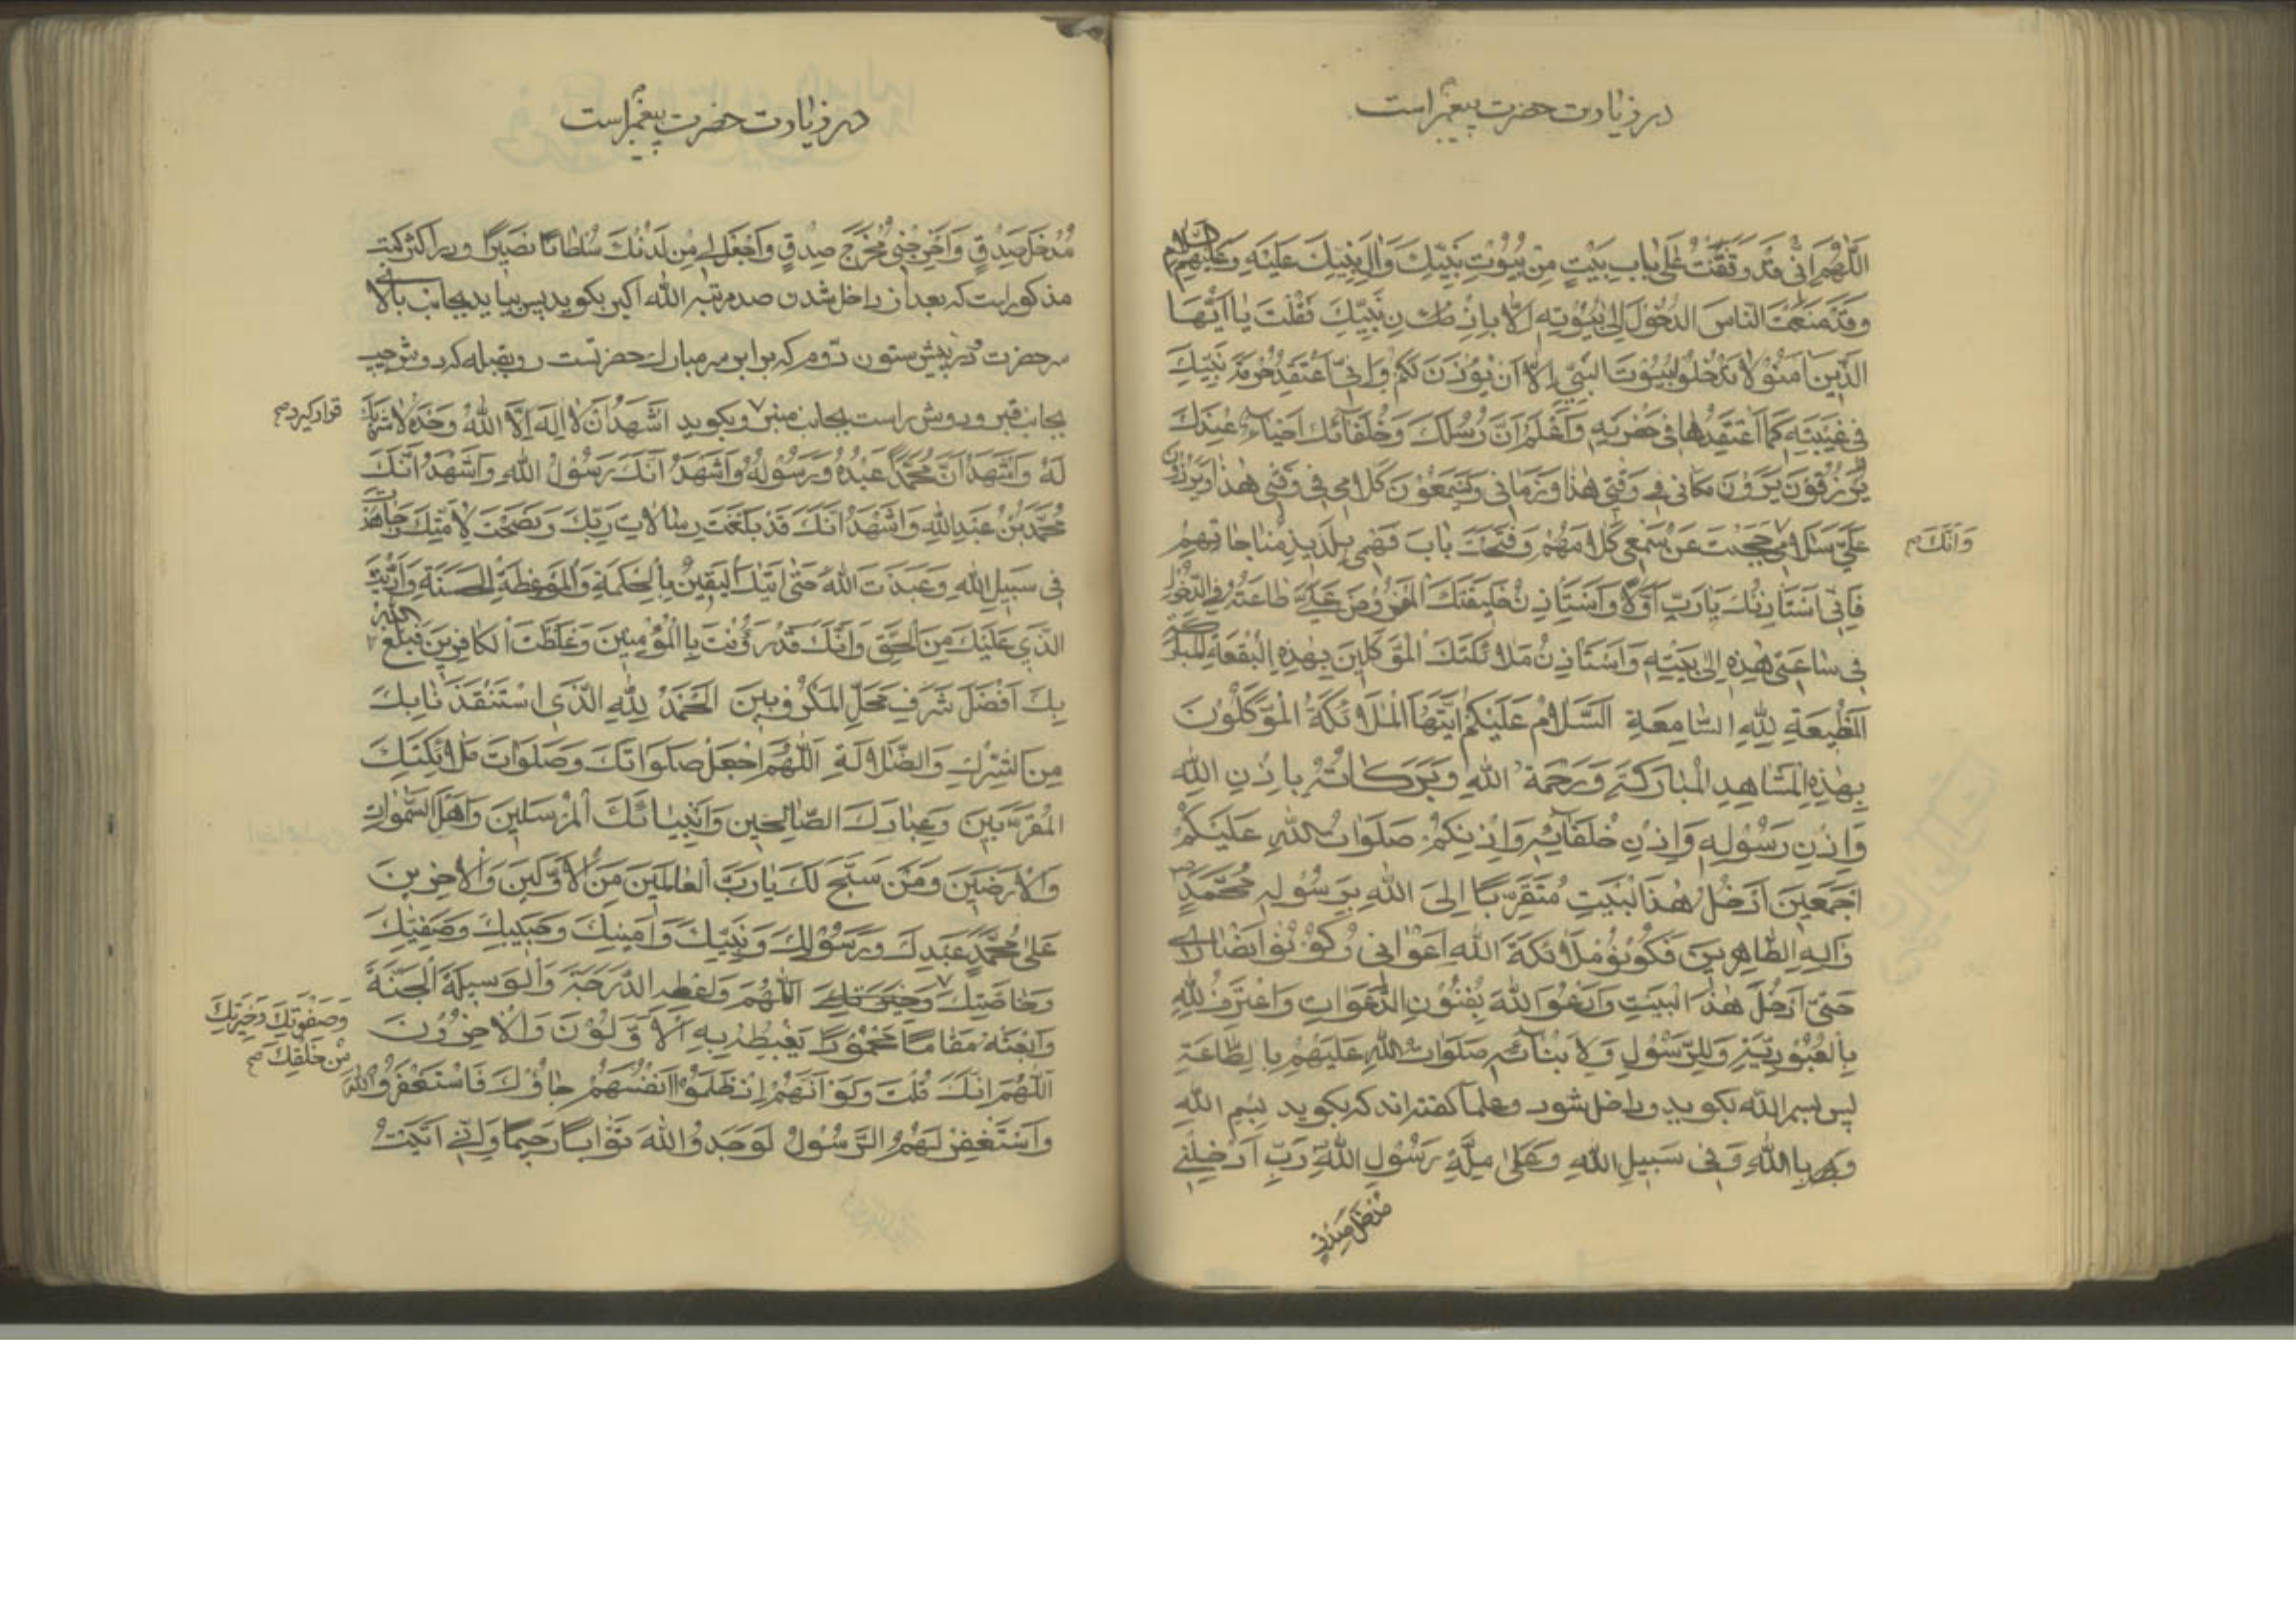 در زیارت حضرت پیغمبر است
اَللّٰهُمَّ اِنّی قَدْ وَقَفْتُ عَلیٰ بابِ بَیْتٍ مِنْ بُیُوتِ نَبِیِّكَ وَالِ نَبِیِّكَ عَلَیْهِ وَعَلَیْهِمُ السَّلام
وَقَدْ مَنَعْتَ النّاسَ الدُّخُولَ اِلیٰ بُیُوتِهِ اِلاّ بِاِذْنِ نَبِیِّكَ فَقُلْتَ یا اَیُّهَا
الَّذینَ امَنُوْ لا تَدْخُلُوْا بُیُوتَ النَّبِیِّ اِلاّ اَنْ یُؤْذَنَ لَكُمْ وَاِنّی اَعْتَقِدُ حُرْمَةَ نَبِیِّكَ
فی غَیْبَتِهِ كَمٰا اَعْتَقِدُهٰا فی حَضْرَتِهِ وَاَعْلَمُ اَنَّ رُسُلَكَ وَخُلَفٰائَكَ اَحْیٰاءٌ عِنْدَكَ
یُرْزَقُوْنَ یَرَوْنَ مَكانی فی وَقْتی هٰذا وَزَمانی وَیَسْمَعُوْنَ كَلامی فی وَقْتی هٰذا وَیَرُدُّوْنَ
عَلَیَّ سَلامی حَجَبْتَ عَنْ سَمْعی كَلامَهُمْ وَفَتَحْتَ بابَ فَهْمی بِلَذیذِ مُناجاتِهِمْ
وَاَنَّكَ صح
فَاِنّی اَسْتَاْذِنُكَ یٰا رَبِّ اَوَّلاً وَاَسْتَاْذِنُ خَلیفَتَكَ الْمَفْرُوْضَ عَلَیَّ طاعَتُهُ فِی الدُّخُوْلِ
فی ساعَتی هٰذِهِ اِلیٰ بَیْتِهِ وَاَسْتَاْذِنُ مَلائِكَتَكَ الْمُوَكَّلینَ بِهٰذِهِ الْبُقْعَةِ الْمُبارَكَةِ
الْمُطیعَةِ لِلّٰهِ السّامِعَةِ اَلسَّلامُ عَلَیْكُمْ اَیَّتُهَا الْمَلائِكَةُ الْمُوَكَّلُوْنَ
بِهٰذِهِ الْمَشاهِدِ الْمُبارَكَةِ وَرَحْمَةُ اللهِ وَبَرَكاتُهُ بِاِذْنِ اللهِ
وَاِذْنِ رَسُوْلِهِ وَاِذْنِ خُلَفائِهِ وَاِذْنِكُمْ صَلَواتُ اللهِ عَلَیْكُمْ
اَجْمَعینَ اَدْخُلُ هٰذَا الْبَیْتَ مُتَقَرِّبًا اِلَی اللهِ بِرَسُوْلِهِ مُحَمَّدٍ
وَالِهِ الطّاهِرینَ فَكُوْنُوْ مَلائِكَةَ اللهِ اَعْوانی وَكُوْنُوْا اَنْصاری
حَتّیٰ اَدْخُلَ هٰذَا الْبَیْتَ وَاَدْعُوَ اللهَ بِفُنُوْنِ الدَّعَواتِ وَاَعْتَرِفُ لِلّٰهِ
بِالْعُبُوْدِیَّةِ وَلِلرَّسُوْلِ وَلِاَبْنائِهِ صَلَواتُ اللهِ عَلَیْهِمْ بِالطّاعَةِ
پس بسم الله بگوید و داخل شود و علما گفته اند كه بگوید بِسْمِ اللهِ
وَبِاللهِ وَفی سَبیلِ اللهِ وَعَلیٰ مِلَّةِ رَسُوْلِ اللهِ رَبِّ اَدْخِلْنی
مدخل صدق
در زیارت حضرت پیغمبر است
مُدْخَلَ صِدْقٍ وَاَخْرِجْنی مُخْرَجَ صِدْقٍ وَاجْعَلْ لی مِنْ لَدُنْكَ سُلْطانًا نَصیرًا و در اكثر كتب
مذكور است كه بعد از داخل شدن صد مرتبه الله اكبر بگوید پس بیاید بجانب بالای
سر حضرت در پیش ستون دوم كه برابر سر مبارك حضرتست رو بقبله كه دوش چپ
بجانب قبر و دوش راست بجانب منبر و بگوید اَشْهَدُ اَنْ لا اِلٰهَ اِلاَّ اللهُ وَحْدَهُ لا شَریكَ
قرار گیرد صح
لَهُ وَاَشْهَدُ اَنَّ مُحَمَّدًا عَبْدُهُ وَرَسُوْلُهُ وَاَشْهَدُ اَنَّكَ رَسُوْلُ اللهِ وَاَشْهَدُ اَنَّكَ
مُحَمَّدُ بْنُ عَبْدِ اللهِ وَاَشْهَدُ اَنَّكَ قَدْ بَلَّغْتَ رِسالاتِ رَبِّكَ وَنَصَحْتَ لِاُمَّتِكَ وَجاهَدْتَ
فی سَبیلِ اللهِ وَعَبَدْتَ اللهَ حَتّیٰ اَتٰیكَ الْیَقینُ بِالْحِكْمَةِ وَالْمَوْعِظَةِ الْحَسَنَةِ وَاَدَّیْتَ
الَّذی عَلَیْكَ مِنَ الْحَقِّ وَاَنَّكَ قَدْ رَؤُفْتَ بِالْمُؤْمِنینَ وَغَلَظْتَ الْكافِرینَ فَبَلَغَ اللهُ
بِكَ اَفْضَلَ شَرَفِ مَحَلِّ الْمُكْرَمینَ اَلْحَمْدُ لِلّٰهِ الَّذی اسْتَنْقَذَنا بِكَ
مِنَ الشِّرْكِ وَالضَّلالَةِ اَللّٰهُمَّ اجْعَلْ صَلَواتَكَ وَصَلَواتَ مَلائِكَتِكَ
الْمُقَرَّبینَ وَعِبادِكَ الصّالِحینَ وَاَنْبِیائِكَ الْمُرْسَلینَ وَاَهْلِ السَّمٰواتِ
وَالْاَرَضینَ وَمَنْ سَبَّحَ لَكَ یا رَبَّ الْعالَمینَ مِنَ الْاَوَّلینَ وَالْاخِرینَ
عَلیٰ مُحَمَّدٍ عَبْدِكَ وَرَسُوْلِكَ وَنَبِیِّكَ وَاَمینِكَ وَحَبیبِكَ وَصَفِیِّكَ
وَخاصَّتِكَ اَللّٰهُمَّ وَاَعْطِهِ الدَّرَجَةَ وَالْوَسیلَةَ الْجَنَّةِ
وَصَفْوَتِكَ وَخِیَرَتِكَ
مِنْ خَلْقِكَ صح
وَابْعَثْهُ مَقامًا مَحْمُوْدًا یَغْبِطُهُ بِهِ الْاَوَّلُوْنَ وَالْاخِرُوْنَ
اَللّٰهُمَّ اِنَّكَ قُلْتَ وَلَوْ اَنَّهُمْ اِذْ ظَلَمُوْا اَنْفُسَهُمْ جاؤُكَ فَاسْتَغْفَرُوا اللهَ
وَاسْتَغْفَرَ لَهُمُ الرَّسُوْلُ لَوَجَدُوا اللهَ تَوّابًا رَحیمًا وَاِنّی اَتَیْتُ